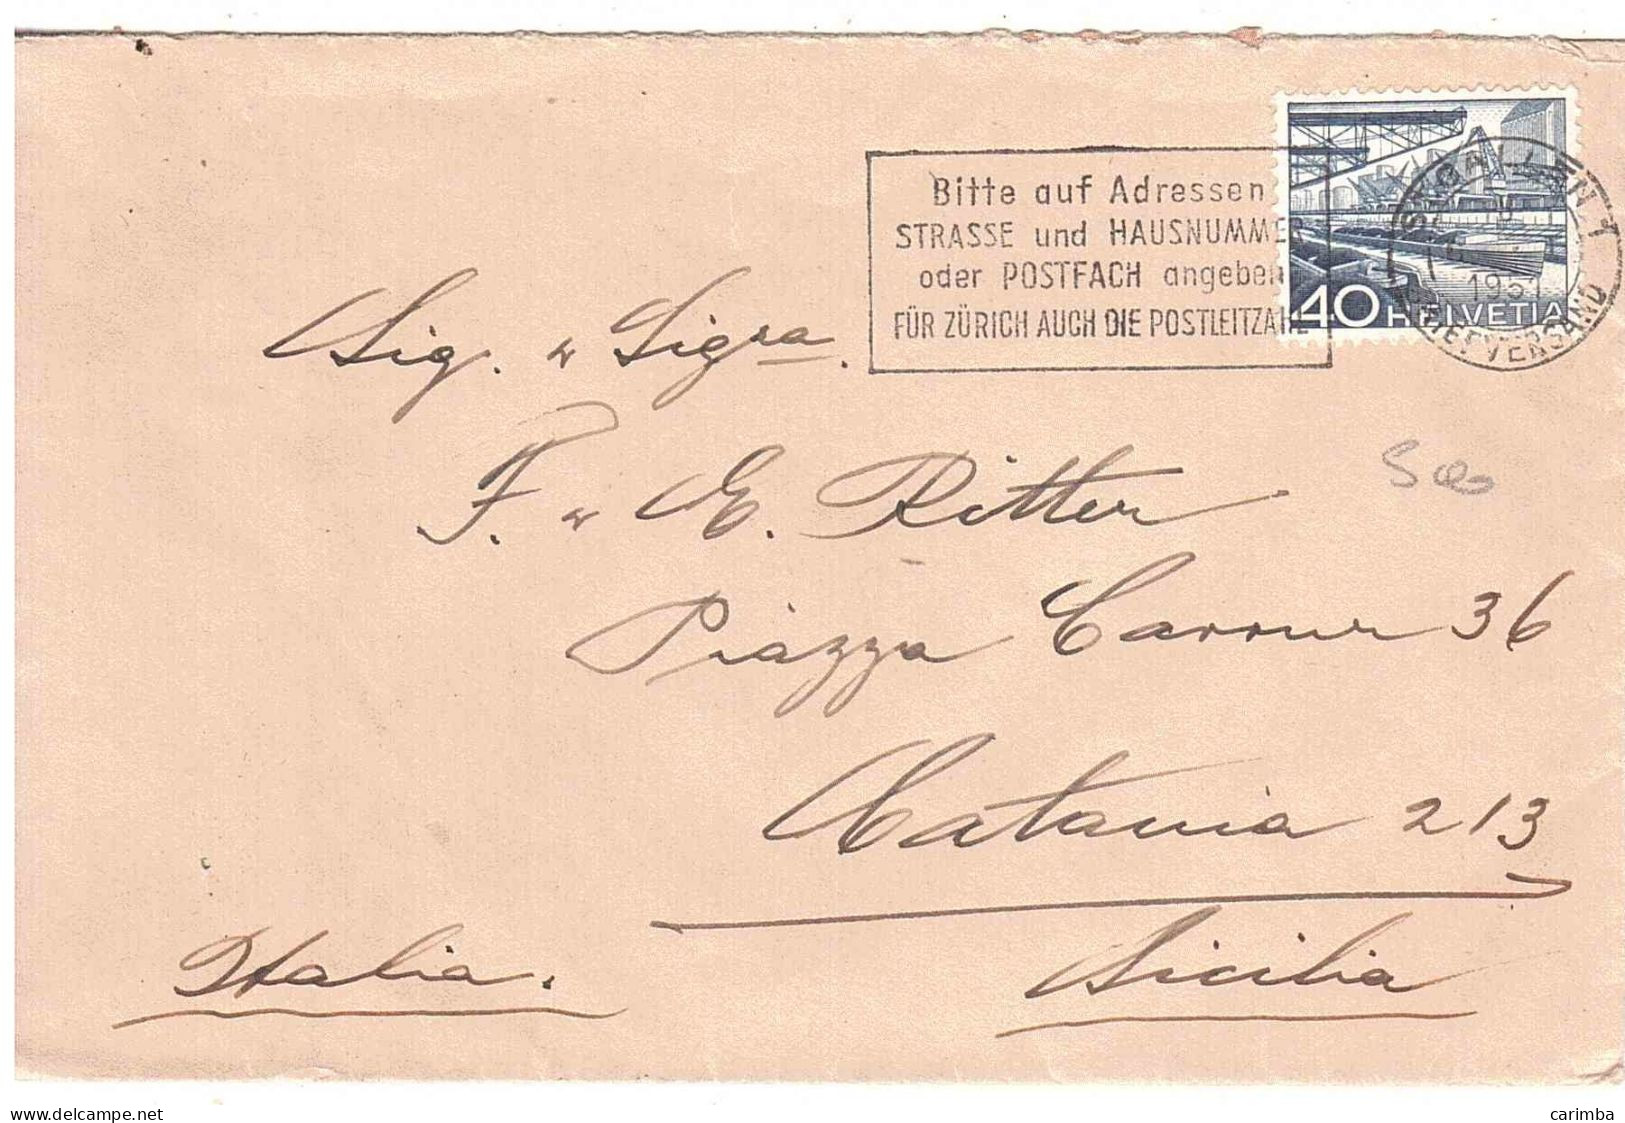 Bitte auf Adressen
STRASSE und HAUSNUMMER
oder POSTFACH angeben
FÜR ZÜRICH AUCH DIE POSTLEITZAHL
40 HELVETIA
ST. GALLEN 1
BRIEFVERSAND
Sig. u Sigra.
F. u E. Ritter
Piazza Cavour 36
Catania 213
Sicilia
Italia.
carimba